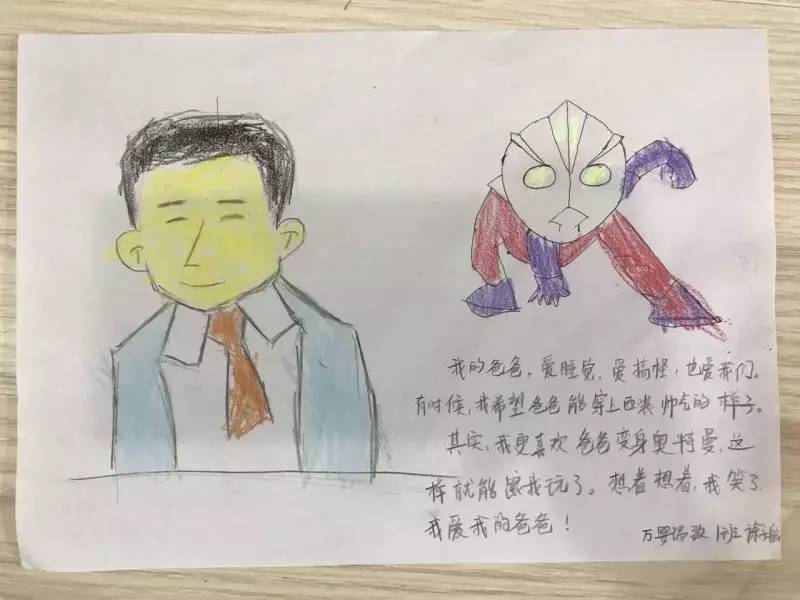 我的爸爸，爱睡觉，爱搞怪，也爱我们。
有时候，我希望爸爸能穿上西装帅气的样子。
其实，我更喜欢爸爸变身奥特曼，这
样就能跟我玩了。想着想着，我笑了，
我爱我的爸爸！
万婴瑞玖 班